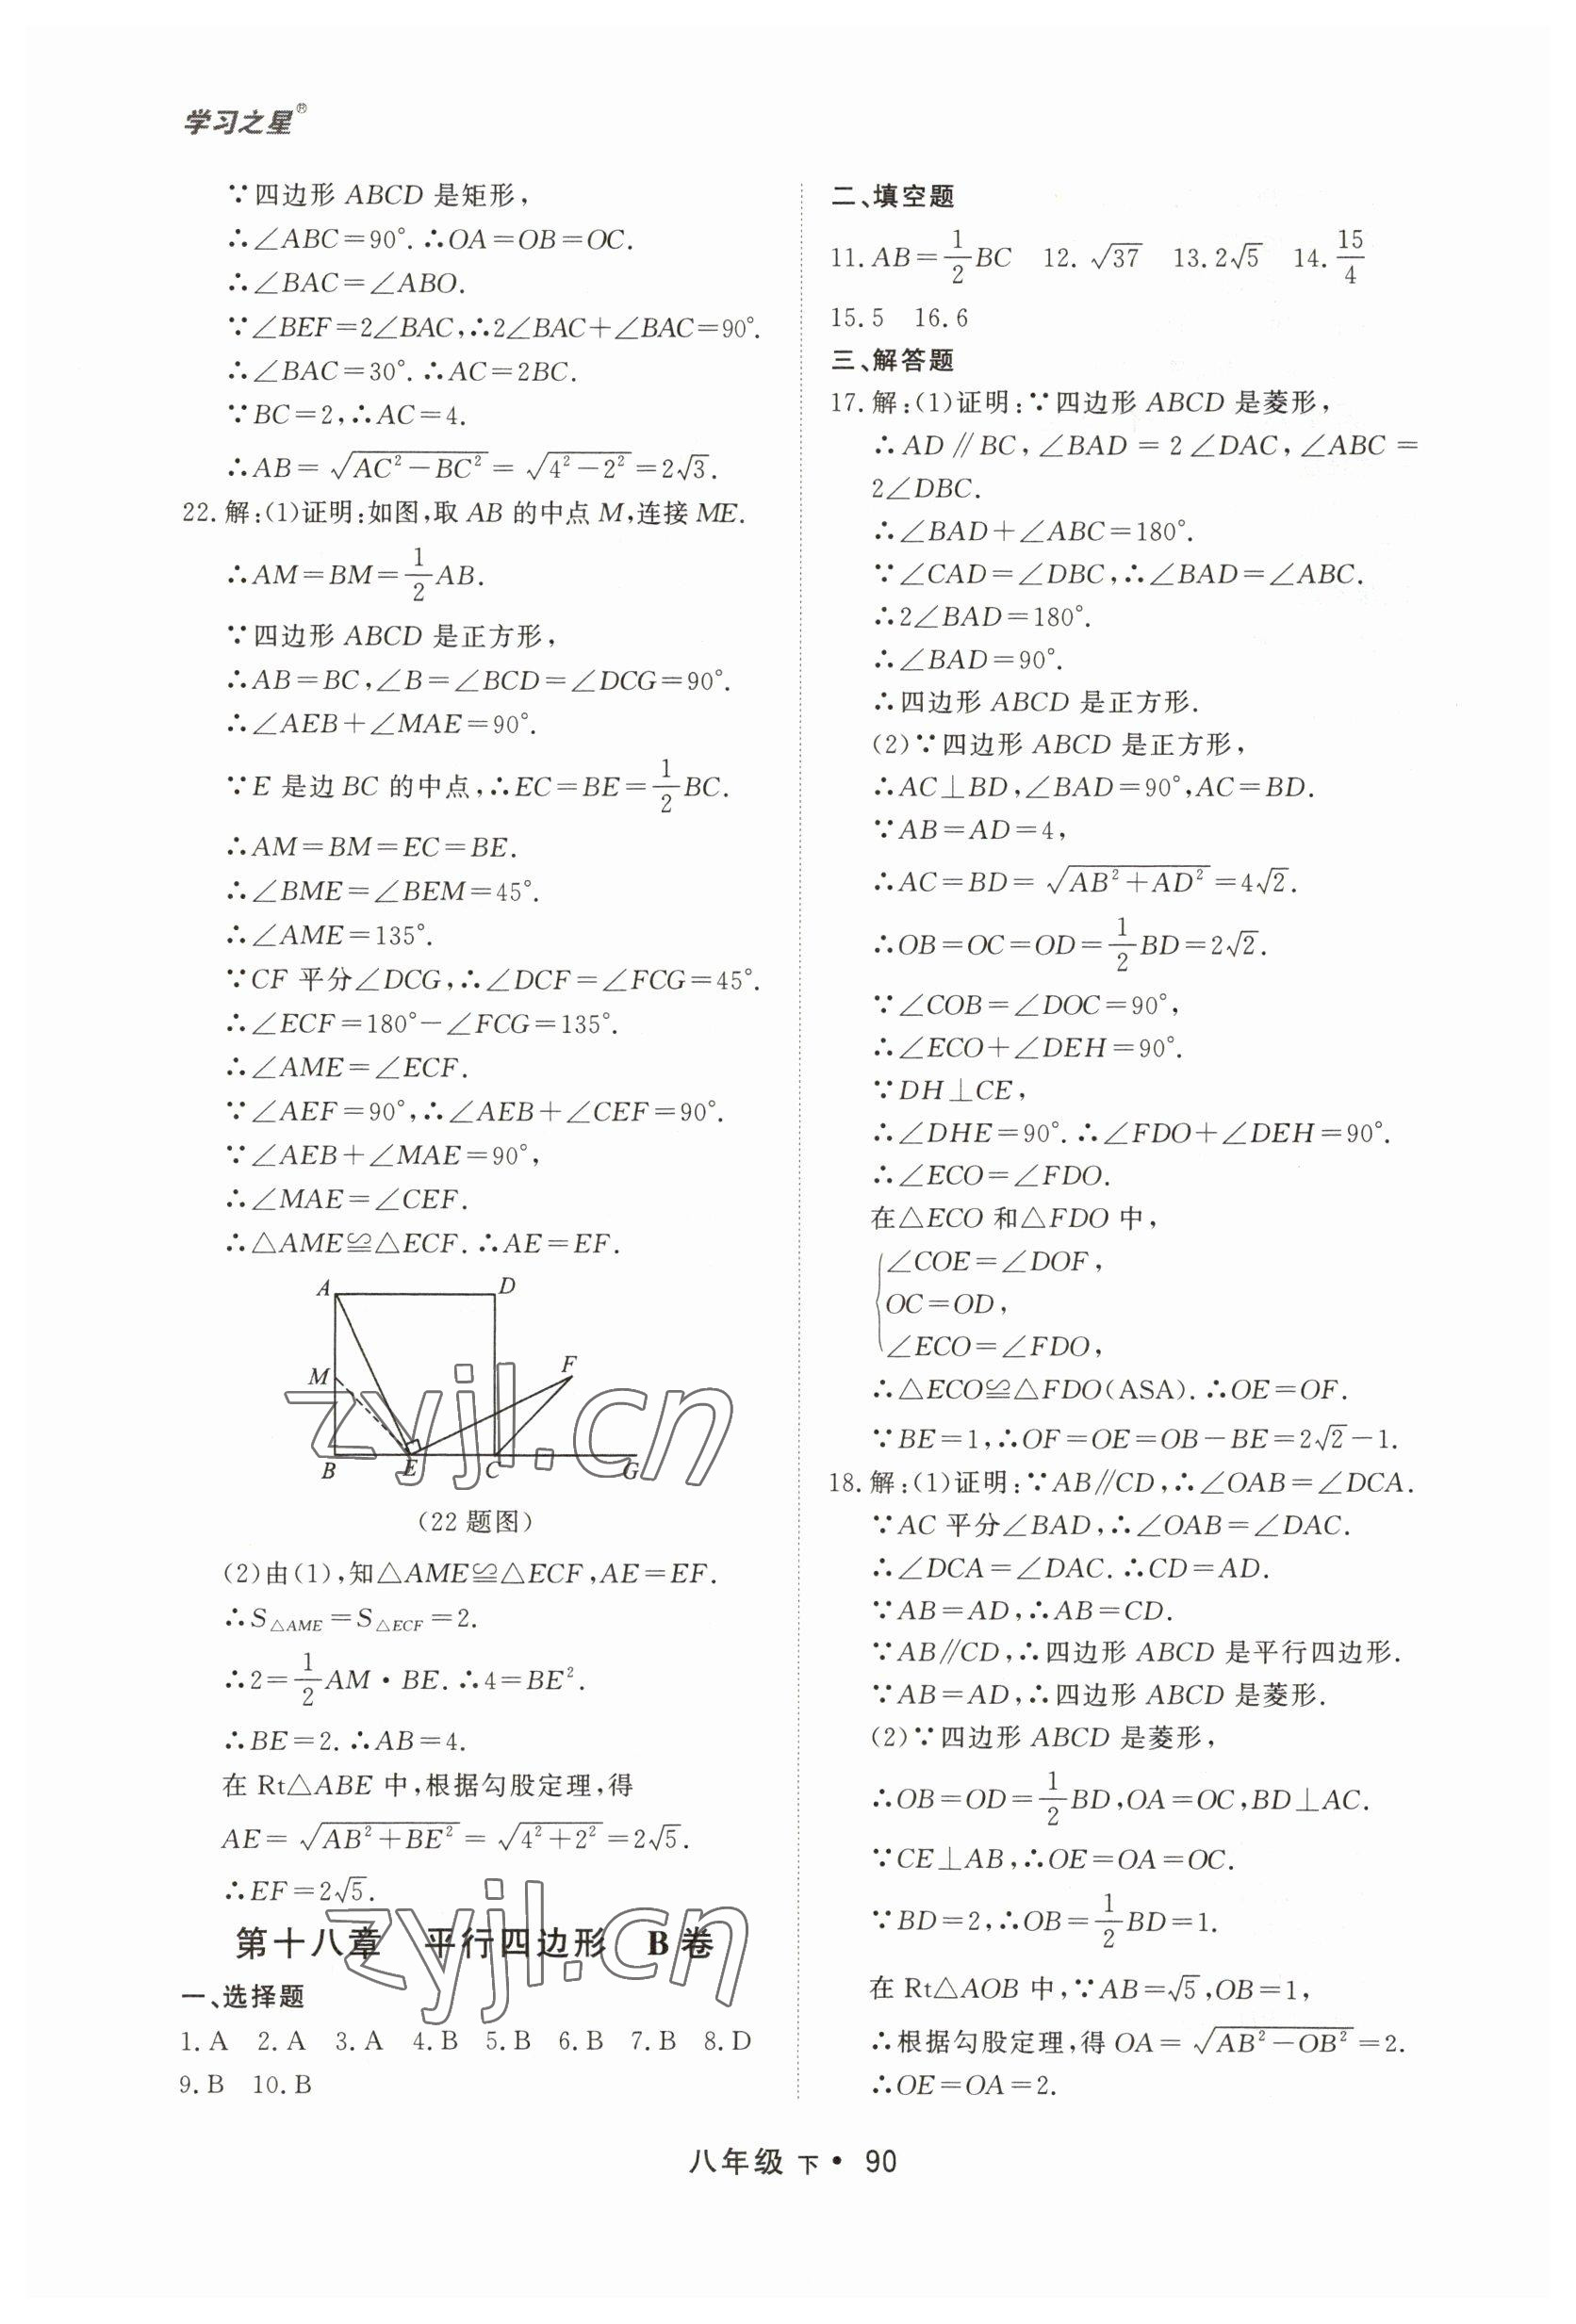 学习之星®
∵四边形 ABCD 是矩形,
∴∠ABC=90°. ∴OA=OB=OC.
∴∠BAC=∠ABO.
∵∠BEF=2∠BAC,∴2∠BAC+∠BAC=90°.
∴∠BAC=30°. ∴AC=2BC.
∵BC=2,∴AC=4.
∴AB=√(AC²-BC²)=√(4²-2²)=2√3.
22.解:(1)证明:如图,取 AB 的中点 M,连接 ME.
∴AM=BM=1/2AB.
∵四边形 ABCD 是正方形,
∴AB=BC,∠B=∠BCD=∠DCG=90°.
∴∠AEB+∠MAE=90°.
∵E 是边 BC 的中点,∴EC=BE=1/2BC.
∴AM=BM=EC=BE.
∴∠BME=∠BEM=45°.
∴∠AME=135°.
∵CF 平分∠DCG,∴∠DCF=∠FCG=45°.
∴∠ECF=180°-∠FCG=135°.
∴∠AME=∠ECF.
∵∠AEF=90°,∴∠AEB+∠CEF=90°.
∵∠AEB+∠MAE=90°,
∴∠MAE=∠CEF.
∴△AME≌△ECF. ∴AE=EF.
A D
F
M
B E C G
zyjl.cn
(22 题图)
(2)由(1),知△AME≌△ECF,AE=EF.
∴S△AME=S△ECF=2.
∴2=1/2AM·BE. ∴4=BE².
∴BE=2. ∴AB=4.
在 Rt△ABE 中,根据勾股定理,得
AE=√(AB²+BE²)=√(4²+2²)=2√5.
∴EF=2√5.
第十八章 平行四边形 B 卷
zyjl.cn
一、选择题
1.A 2.A 3.A 4.B 5.B 6.B 7.B 8.D
9.B 10.B
二、填空题
11.AB=1/2BC 12.√37 13.2√5 14.15/4
15.5 16.6
三、解答题
17.解:(1)证明:∵四边形 ABCD 是菱形,
∴AD∥BC,∠BAD=2∠DAC,∠ABC=
2∠DBC.
∴∠BAD+∠ABC=180°.
∵∠CAD=∠DBC,∴∠BAD=∠ABC.
∴2∠BAD=180°.
∴∠BAD=90°.
∴四边形 ABCD 是正方形.
(2)∵四边形 ABCD 是正方形,
∴AC⊥BD,∠BAD=90°,AC=BD.
∵AB=AD=4,
∴AC=BD=√(AB²+AD²)=4√2.
∴OB=OC=OD=1/2BD=2√2.
∵∠COB=∠DOC=90°,
∴∠ECO+∠DEH=90°.
∵DH⊥CE,
∴∠DHE=90°. ∴∠FDO+∠DEH=90°.
∴∠ECO=∠FDO.
在△ECO 和△FDO 中,
∠COE=∠DOF,
OC=OD,
∠ECO=∠FDO,
∴△ECO≌△FDO(ASA). ∴OE=OF.
∵BE=1,∴OF=OE=OB-BE=2√2-1.
18.解:(1)证明:∵AB∥CD,∴∠OAB=∠DCA.
∵AC 平分∠BAD,∴∠OAB=∠DAC.
∴∠DCA=∠DAC. ∴CD=AD.
∵AB=AD,∴AB=CD.
∵AB∥CD,∴四边形 ABCD 是平行四边形.
∵AB=AD,∴四边形 ABCD 是菱形.
(2)∵四边形 ABCD 是菱形,
∴OB=OD=1/2BD,OA=OC,BD⊥AC.
∵CE⊥AB,∴OE=OA=OC.
∵BD=2,∴OB=1/2BD=1.
在 Rt△AOB 中,∵AB=√5,OB=1,
∴根据勾股定理,得 OA=√(AB²-OB²)=2.
∴OE=OA=2.
八年级 下·90